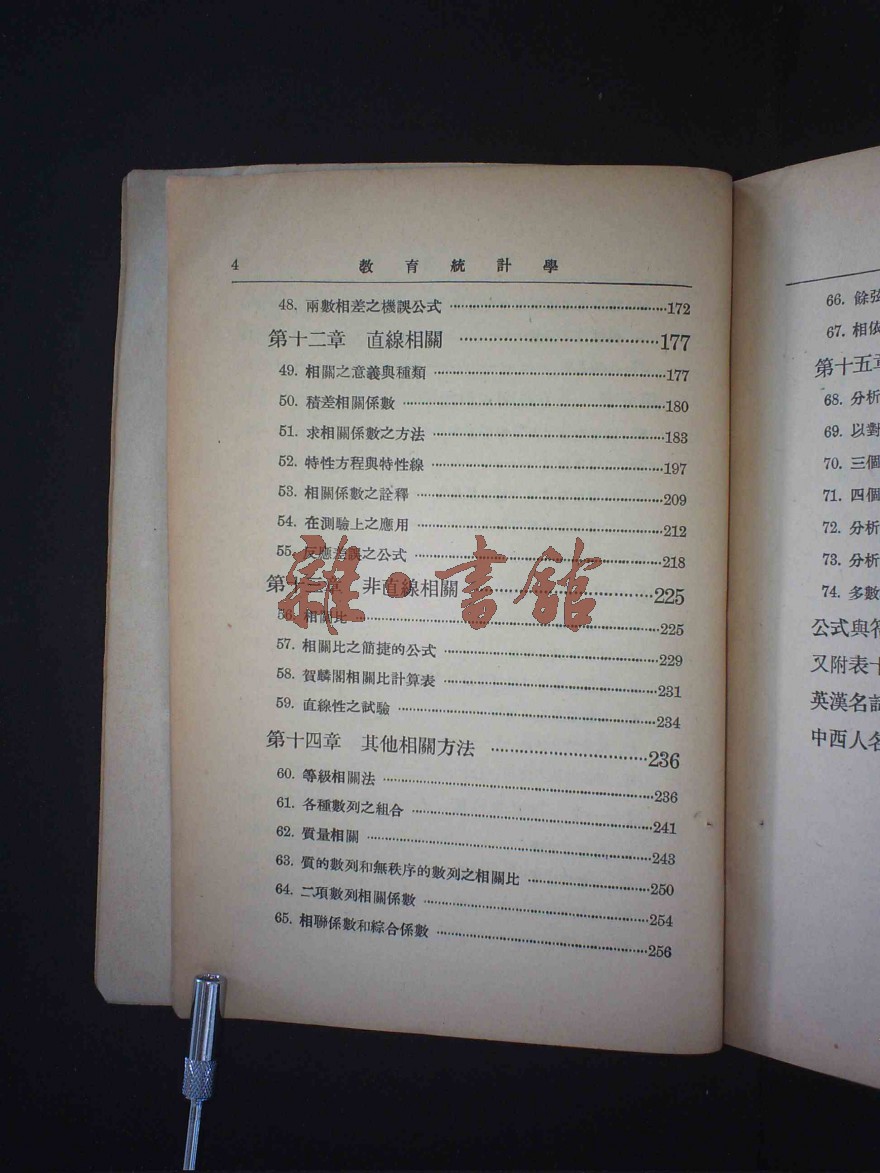 4 教育統計學
48. 兩數相差之機誤公式 172
第十二章 直線相關 177
49. 相關之意義與種類 177
50. 積差相關係數 180
51. 求相關係數之方法 183
52. 特性方程與特性線 197
53. 相關係數之詮釋 209
54. 在測驗上之應用 212
55. 反應差誤之公式 218
第十三章 非直線相關 225
56. 相關比 225
57. 相關比之簡捷的公式 229
58. 賀麟閣相關比計算表 231
59. 直線性之試驗 234
第十四章 其他相關方法 236
60. 等級相關法 236
61. 各種數列之組合 241
62. 質量相關 243
63. 質的數列和無秩序的數列之相關比 250
64. 二項數列相關係數 254
65. 相聯係數和綜合係數 256
雜·書館
66. 餘弦
67. 相依
第十五章
68. 分析
69. 以對
70. 三個
71. 四個
72. 分析
73. 分析
74. 多數
公式與符
又附表十
英漢名詞
中西人名